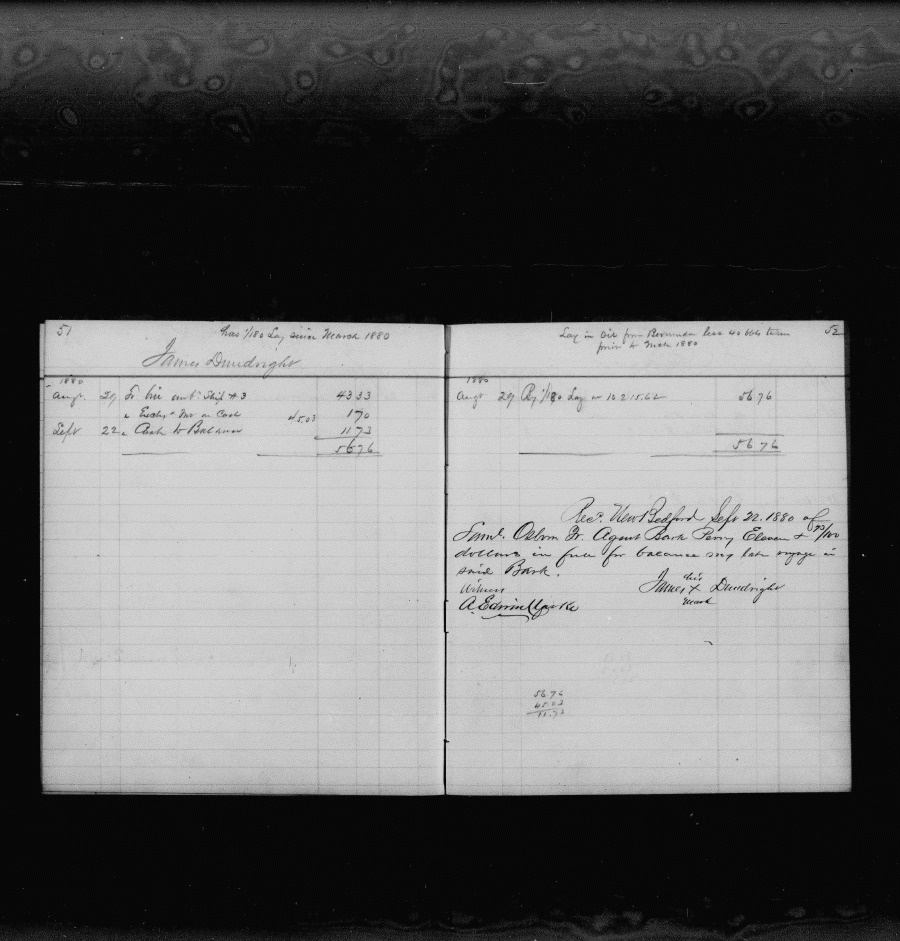 51
has 1/180 Lay since March 1880
James Dumdright
1880
Augt. 29 To his amt. Ship #3 43 33
" Exchg & Int on Cash 45.03 1 70
Sept 22 " Cash to Balance 11 73
56 76
Lay in Oil from Bermuda less 40 bbls term 52
prior to Mch 1880
1880
Augt 29 By 1/180 Lay on 10215.62 56 76
56 76
Recd. New Bedford Sept 22. 1880 of
Saml. Osborn Jr. Agent Bark Perry Eleven & 73/100
dollars in full for balance my late voyage in
said Bark.
Witness
his
James X Dumdright
mark
A. Edwin
56.76
45.03
11.73